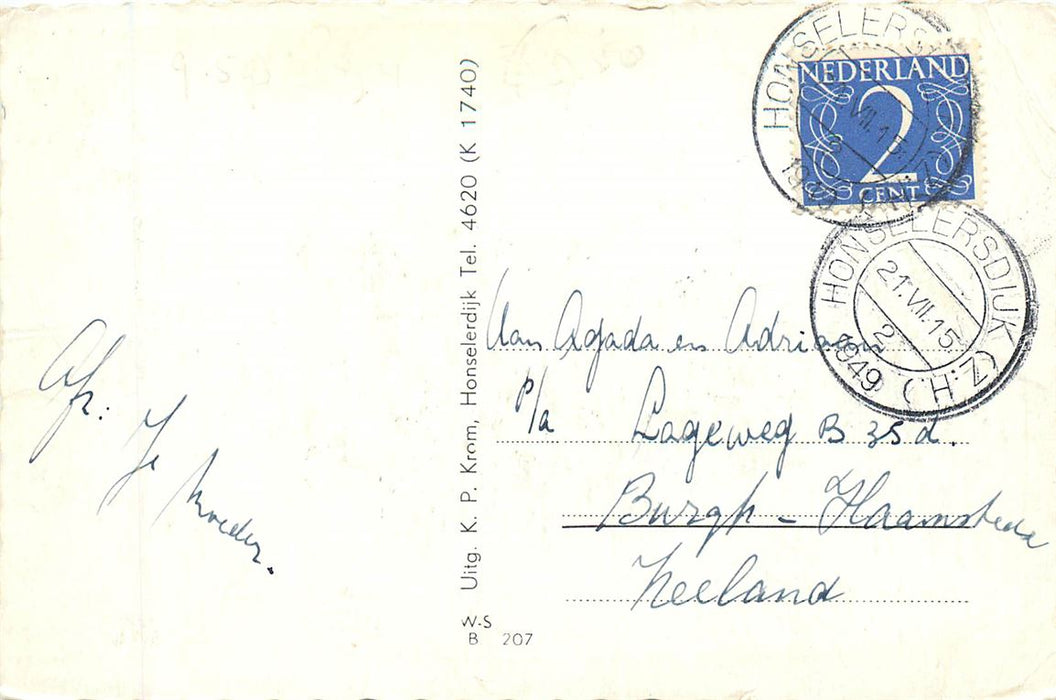 Afz: Je
moeder.
Uitg. K. P. Krom, Honselerdijk Tel. 4620 (K 1740)
W-S
B 207
NEDERLAND
2
CENT
HONSELERSDIJK (Z.H.)
VII.15
1949
HONSELERSDIJK (Z.H.)
21.VII.15
2
1949
Aan Agada en Adriaan
p/a Lageweg B 35 d.
Burgh - Haamstede
Zeeland